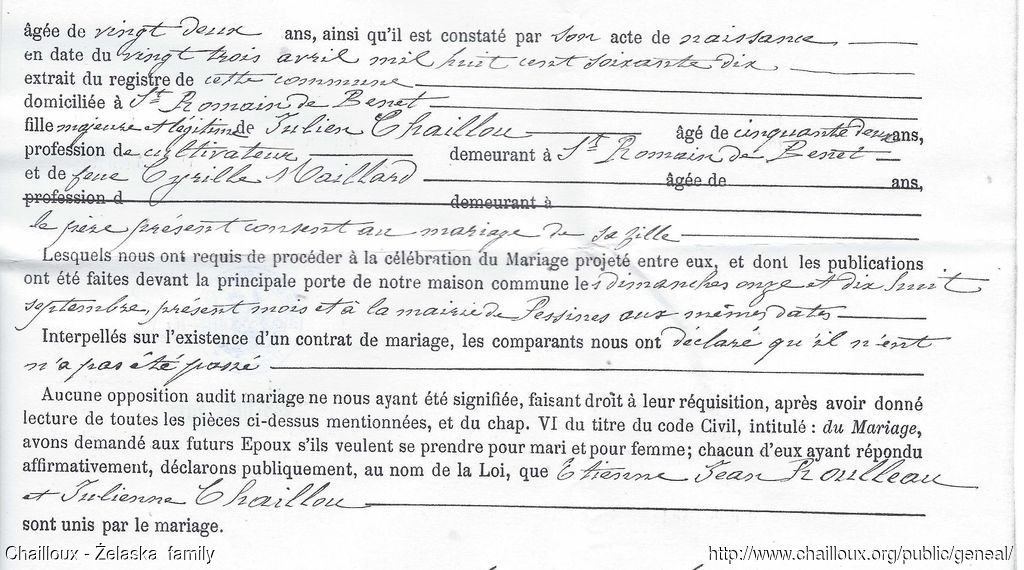 âgée de vingt deux ans, ainsi qu'il est constaté par son acte de naissance
en date du vingt trois avril mil huit cent soixante dix
extrait du registre de cette commune
domiciliée à St Romain de Benet
fille majeure et légitime de Julien Chaillou âgé de cinquante deux ans,
profession de cultivateur demeurant à St Romain de Benet
et de feue Cyrille Maillard âgée de ans,
profession d demeurant à
le père présent consent au mariage de sa fille
Lesquels nous ont requis de procéder à la célébration du Mariage projeté entre eux, et dont les publications
ont été faites devant la principale porte de notre maison commune les dimanches onze et dix huit
septembre, présent mois et à la mairie de Pessines aux mêmes dates
Interpellés sur l'existence d'un contrat de mariage, les comparants nous ont déclaré qu'il n'ent
n'a pas été passé
Aucune opposition audit mariage ne nous ayant été signifiée, faisant droit à leur réquisition, après avoir donné
lecture de toutes les pièces ci-dessus mentionnées, et du chap. VI du titre du code Civil, intitulé : du Mariage,
avons demandé aux futurs Epoux s'ils veulent se prendre pour mari et pour femme; chacun d'eux ayant répondu
affirmativement, déclarons publiquement, au nom de la Loi, que Etienne Jean Roulleau
et Julienne Chaillou
sont unis par le mariage.
Chailloux - Żelaska family http://www.chailloux.org/public/geneal/